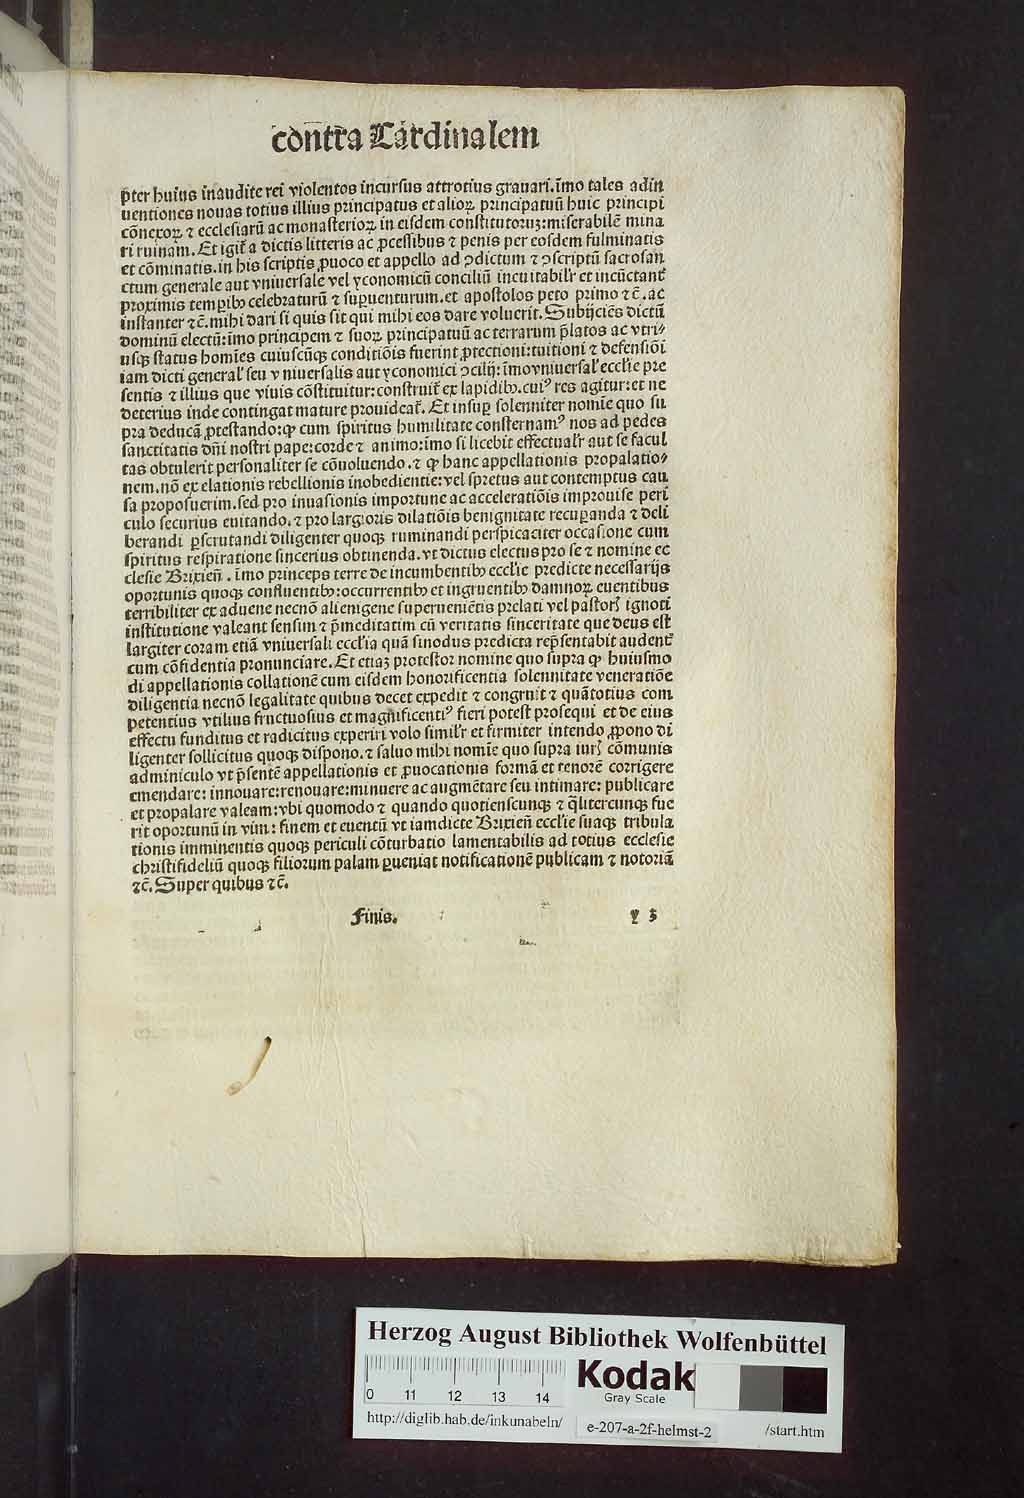 contra Cardinalem
p̄ter huius inaudite rei violentos incursus attrotius grauari.īmo tales adin
uentiones nouas totius illius principatus et alioꝝ principatuū huic principi
cōnexoꝝ ⁊ ecclesiarū ac monasterioꝝ in eisdem constitutoruꝫ:miserabilē mina
ri ruinam. Et igit̄ a dictis litteris ac ꝓcessibus ⁊ penis per eosdem fulminatis
et cōminatis.in his scriptis ꝓuoco et appello ad ꝯdictum ⁊ ꝯscriptū sacrosan
ctum generale aut vniuersale vel yconomicū conciliū incuitabilr̄ et incūctant̄
proximis tempibꝰ celebraturū ⁊ supuenturum.et apostolos peto primo ⁊c̄.ac
instanter ⁊c̄.mihi dari si quis sit qui mihi eos dare voluerit.Subijciēs dictū
dominū electū:īmo principem ⁊ suoꝝ principatuū ac terrarum p̄latos ac vtri⸗
usqꝫ status homīes cuiuscūqꝫ conditiōis fuerint ꝓtectioni:tuitioni ⁊ defensiōi
iam dicti general' seu vniuersalis aut yconomici ꝯcilij:īmovniuersal' eccl'ie pre
sentis ⁊ illius que viuis cōstituitur:construit̄ ex lapidibꝰ.cuiꝰ res agitur:et ne
deterius inde contingat mature prouideat̄. Et insuꝑ solenniter nomīe quo su
pra deducā ꝓtestando:ꝙ cum spiritus humilitate consternamꝰ nos ad pedes
sanctitatis dn̄i nostri pape:corde ⁊ animo:īmo si licebit effectualr̄ aut se facul
tas obtulerit personaliter se cōuoluendo.⁊ ꝙ hanc appellationis propalatio⸗
nem.nō ex elationis rebellionis inobedientie:vel spretus aut contemptus cau
sa proposuerim.sed pro inuasionis importune ac acceleratiōis improuise peri
culo securius euitando.⁊ pro largioris dilatiōis benignitate recuꝑanda ⁊ deli
berandi ꝑscrutandi diligenter quoqꝫ ruminandi perspicaciter occasione cum
spiritus respiratione sincerius obtinenda.vt dictus electus pro se ⁊ nomine ec
clesie Brixien̄. īmo princeps terre de incumbentibꝰ eccl'ie predicte necessarijs
oportunis quoqꝫ confluentibꝰ:occurrentibꝰ et ingruentibꝰ damnoꝝ euentibus
terribiliter ex aduene necnō alienigene superueniētis prelati vel pastorꝭ ignoti
institutione valeant sensim ⁊ p̄meditatim cū veritatis sinceritate que deus est
largiter coram etiā vniuersali eccl'ia quā sinodus predicta rep̄sentabit audent̄
cum cōfidentia pronunciare. Et etiaꝫ protestor nomine quo supra ꝙ huiusmo
di appellationis collationē cum eisdem honorificentia solennitate veneratiōe
diligentia necnō legalitate quibus decet expedit ⁊ congruit ⁊ quātotius com
petentius vtilius fructuosius et magnificentiꝰ fieri potest prosequi et de eius
effectu funditus et radicitus experiri volo similr̄ et firmiter intendo ꝓpono di
ligenter sollicitus quoqꝫ dispono.⁊ saluo mihi nomīe quo supra iurꝭ cōmunis
adminiculo vt p̄sentē appellationis et ꝓuocationis formā et tenorē corrigere
emendare: innouare:renouare:minuere ac augmētare seu intimare: publicare
et propalare valeam:vbi quomodo ⁊ quando quotienscunqꝫ ⁊ q̄litercunqꝫ fue
rit oportunū in vim: finem et euentū vt iamdicte Brixien̄ eccl'ie suaqꝫ tribula
tionis imminentis quoqꝫ periculi cōturbatio lamentabilis ad totius ecclesie
christifideliū quoqꝫ filiorum palam ꝑueniat notificationē publicam ⁊ notoriā
⁊c̄. Super quibus ⁊c̄.
Finis. y 3
Herzog August Bibliothek Wolfenbüttel
0 11 12 13 14
Kodak
Gray Scale
http://diglib.hab.de/inkunabeln/ e-207-a-2f-helmst-2 /start.htm